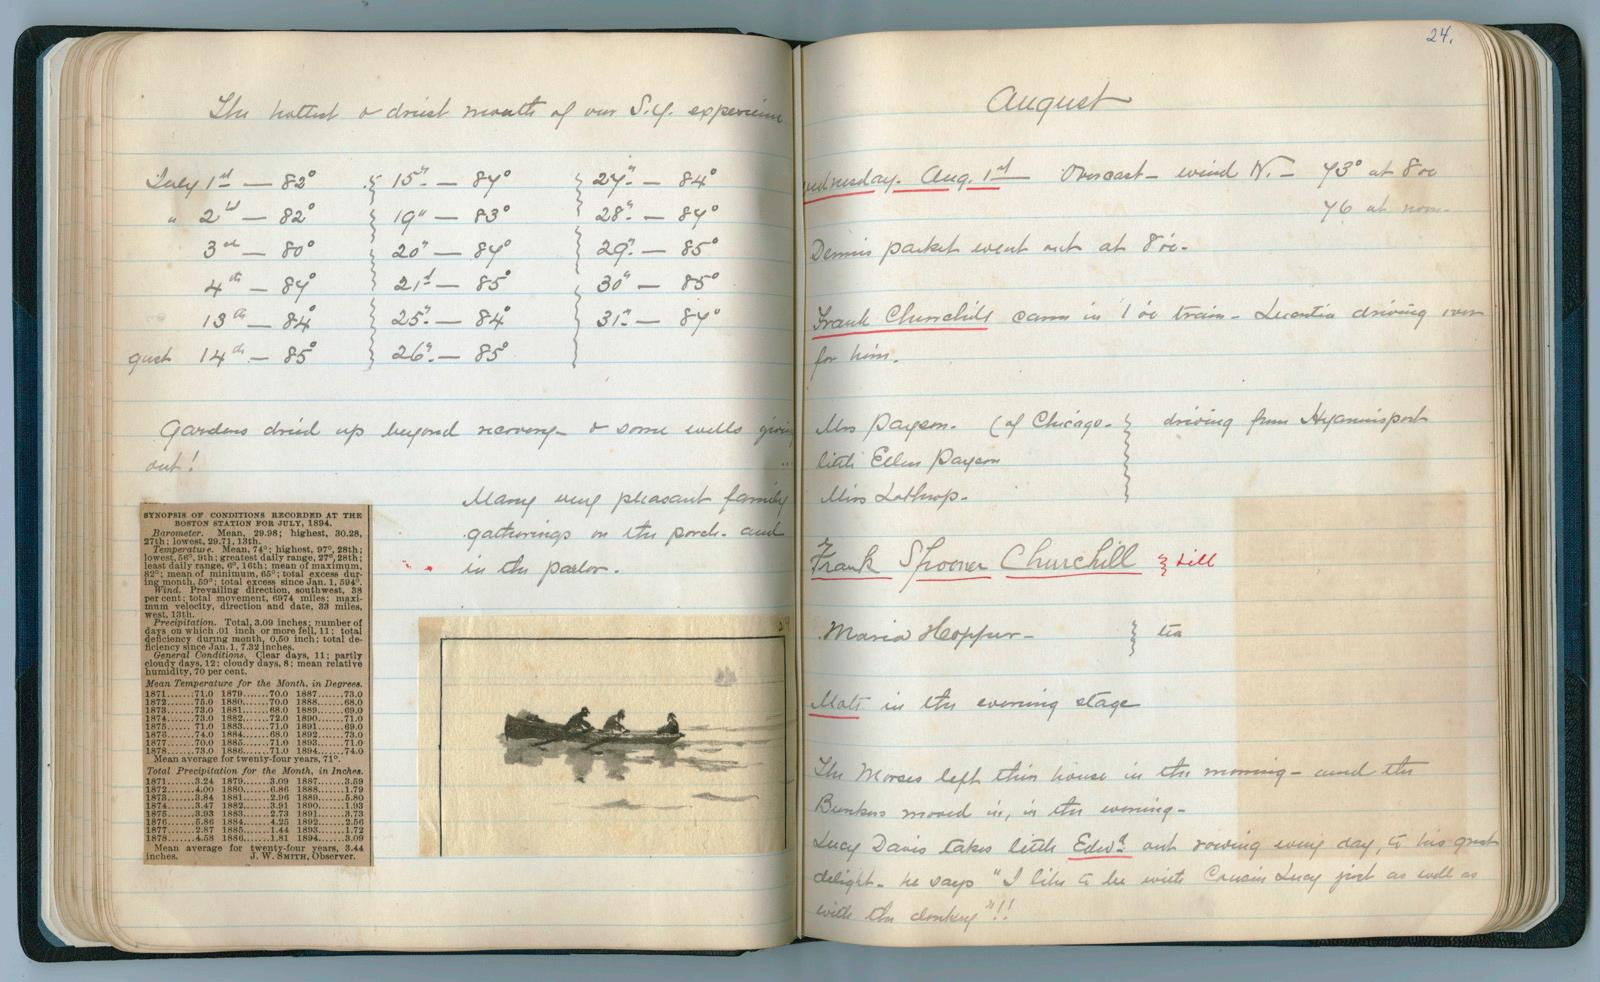 The hottest & driest month of our S.Y. experience
July 1st — 82° 15th — 84° 27th — 84°
" 2d — 82° 19" — 83° 28th — 84°
3rd — 80° 20" — 84° 29th — 85°
4th — 84° 21st — 85° 30" — 85°
13th — 84° 25th — 84° 31st — 84°
gust 14th — 85° 26th — 85°
Gardens dried up beyond recovery — & some wells giving
out!
Many very pleasant family
gatherings on the porch — and
in the parlor.
SYNOPSIS OF CONDITIONS RECORDED AT THE
BOSTON STATION FOR JULY, 1894.
Barometer. Mean, 29.98; highest, 30.28,
27th; lowest, 29.71, 13th.
Temperature. Mean, 74°; highest, 97°, 28th;
lowest, 56°, 9th; greatest daily range, 27°, 28th;
least daily range, 6°, 16th; mean of maximum,
82°; mean of minimum, 65°; total excess dur-
ing month, 59°; total excess since Jan. 1, 594°.
Wind. Prevailing direction, southwest, 38
per cent; total movement, 6974 miles; maxi-
mum velocity, direction and date, 33 miles,
west, 13th.
Precipitation. Total, 3.09 inches; number of
days on which .01 inch or more fell, 11; total
deficiency during month, 0.50 inch; total de-
ficiency since Jan. 1, 7.32 inches.
General Conditions. Clear days, 11; partly
cloudy days, 12; cloudy days, 8; mean relative
humidity, 70 per cent.
Mean Temperature for the Month, in Degrees.
1871......71.0 1879......70.0 1887......73.0
1872......75.0 1880......70.0 1888......68.0
1873......73.0 1881......68.0 1889......69.0
1874......73.0 1882......72.0 1890......71.0
1875......71.0 1883......71.0 1891......69.0
1876......74.0 1884......68.0 1892......73.0
1877......70.0 1885......71.0 1893......71.0
1878......73.0 1886......71.0 1894......74.0
Mean average for twenty-four years, 71°.
Total Precipitation for the Month, in Inches.
1871......3.24 1879......3.09 1887......3.59
1872......4.00 1880......6.86 1888......1.79
1873......3.84 1881......2.96 1889......5.80
1874......3.47 1882......3.91 1890......1.93
1875......3.93 1883......2.73 1891......3.73
1876......5.86 1884......4.25 1892......2.56
1877......2.87 1885......1.44 1893......1.72
1878......4.58 1886......1.81 1894......3.09
Mean average for twenty-four years, 3.44
inches. J. W. SMITH, Observer.
24.
August
ednesday. Aug. 1st — Overcast — wind N. — 73° at 8 oc
76 at noon —
Dennis packet went out at 8 oc.
Frank Churchill came in 1 oc train — Lucretia driving over
for him.
Mrs Payson. (of Chicago. driving from Hyannisport
little Ellen Payson
Miss Lothrop.
Frank Spooner Churchill till
Maria Hopper — tea
Matt in the evening stage
The Morses left their house in the morning — and the
Bunkers moved in, in the evening —
Lucy Davis takes little Edwd. out rowing every day, to his great
delight — he says "I like to be with Cousin Lucy just as well as
with the donkey"!!